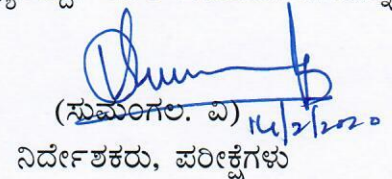 (ಸುಮಂಗಲ. ವಿ) 14/2/2020
ನಿರ್ದೇಶಕರು, ಪರೀಕ್ಷೆಗಳು